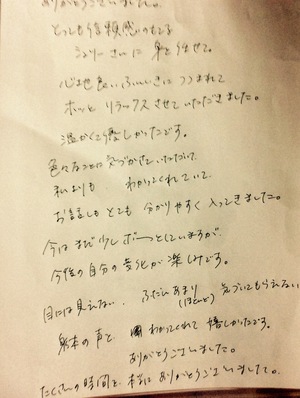 ありがとうございました。
とっても信頼感のもてる
シェリーさんに 身を任せて。
心地良いふんいきに つつまれて
ホッと リラックスさせていただきました。
温かくて優しかったです。
色々なことに気づかせていただいて
私よりも わかってくれていて
お話しも とても 分かりやすく 入ってきました。
今はまだ少しボーっとしていますが、
今後の自分の変化が楽しみです。
目には見えない、ふだんあまり 気づいてもらえない
(ほとんど)
身体の声を わかってくれて 嬉しかったです。
ありがとうございました。
たくさんの時間を 本当に ありがとうございました。